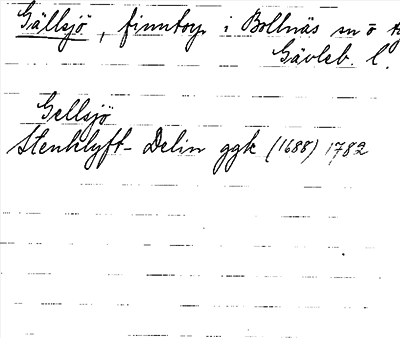 Gällsjö, finntorp i Bollnäs sn o
Gävleb. l.
Gellsjö
Stenklyft- Delin ggk (1688) 1782